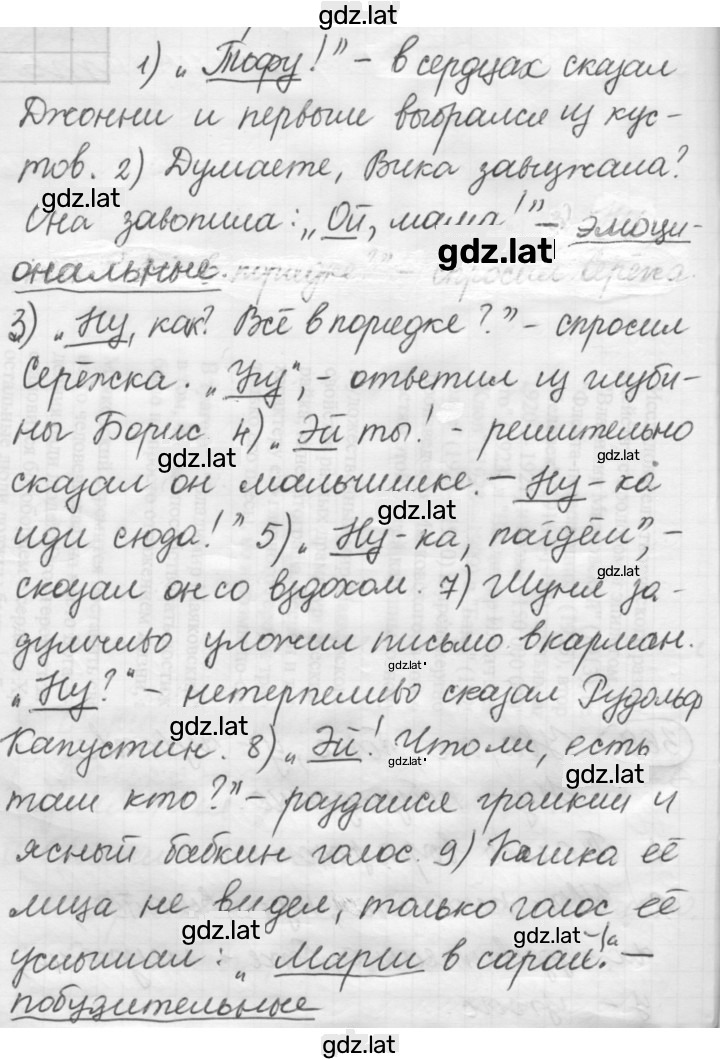 gdz.lat
1) „Тьфу!” – в сердцах сказал
Джонни и первым выбрался из кус-
тов. 2) Думаете, Вика завизжала?
gdz.lat
Она завопила: „Ой, мама!” – эмоци-
gdz.lat
ональные.
3) „Ну, как? Всё в порядке?” – спросил
Серёжка. „Угу”, – ответил из глуби-
ны Борис 4) „Эй ты! – решительно
gdz.lat
gdz.lat
сказал он малышике. – Ну-ка
gdz.lat
иди сюда!” 5) „Ну-ка, пойдём”, –
gdz.lat
сказал он со вздохом. 7) Шуня за-
думчиво уложил письмо в карман.
gdz.lat
„Ну?“ – нетерпеливо сказал Рудольф
gdz.lat
Капустин. 8) „Эй! Что ли, есть
gdz.lat
gdz.lat
там кто?” – раздался громкий и
ясный бабкин голос. 9) Кошка её
лица не видел, только голос её
gdz.lat
gdz.lat
услышал: „Марш в сарай. –
побудительные
gdz.lat